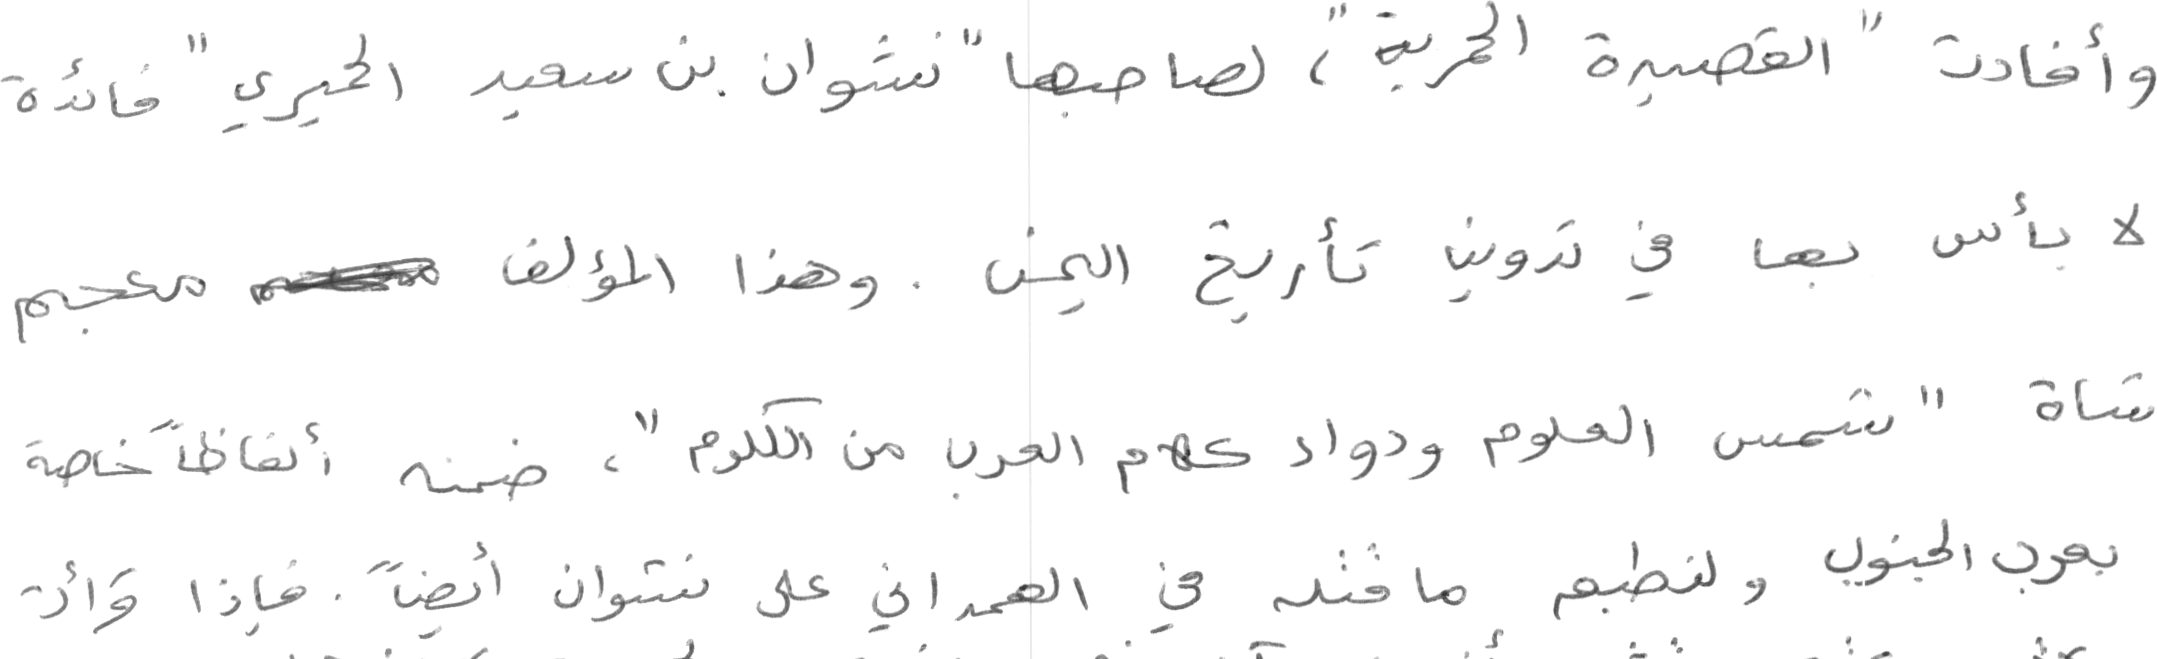 وأفادت "القصيدة الحمرية"، لصاحبها "نشوان بن سعيد الحميري" فائدة
لا بأس بها في تدوين تأريخ اليمن . وهذا المؤلف معجم
شاة "شمس العلوم ودواء كلام العرب من الكلوم"، ضمنه ألفاظاً خاصة
بعرب الجنوب ولغطبهم ما قتله في الهمداني على نشوان أيضاً. فإذا قرأت